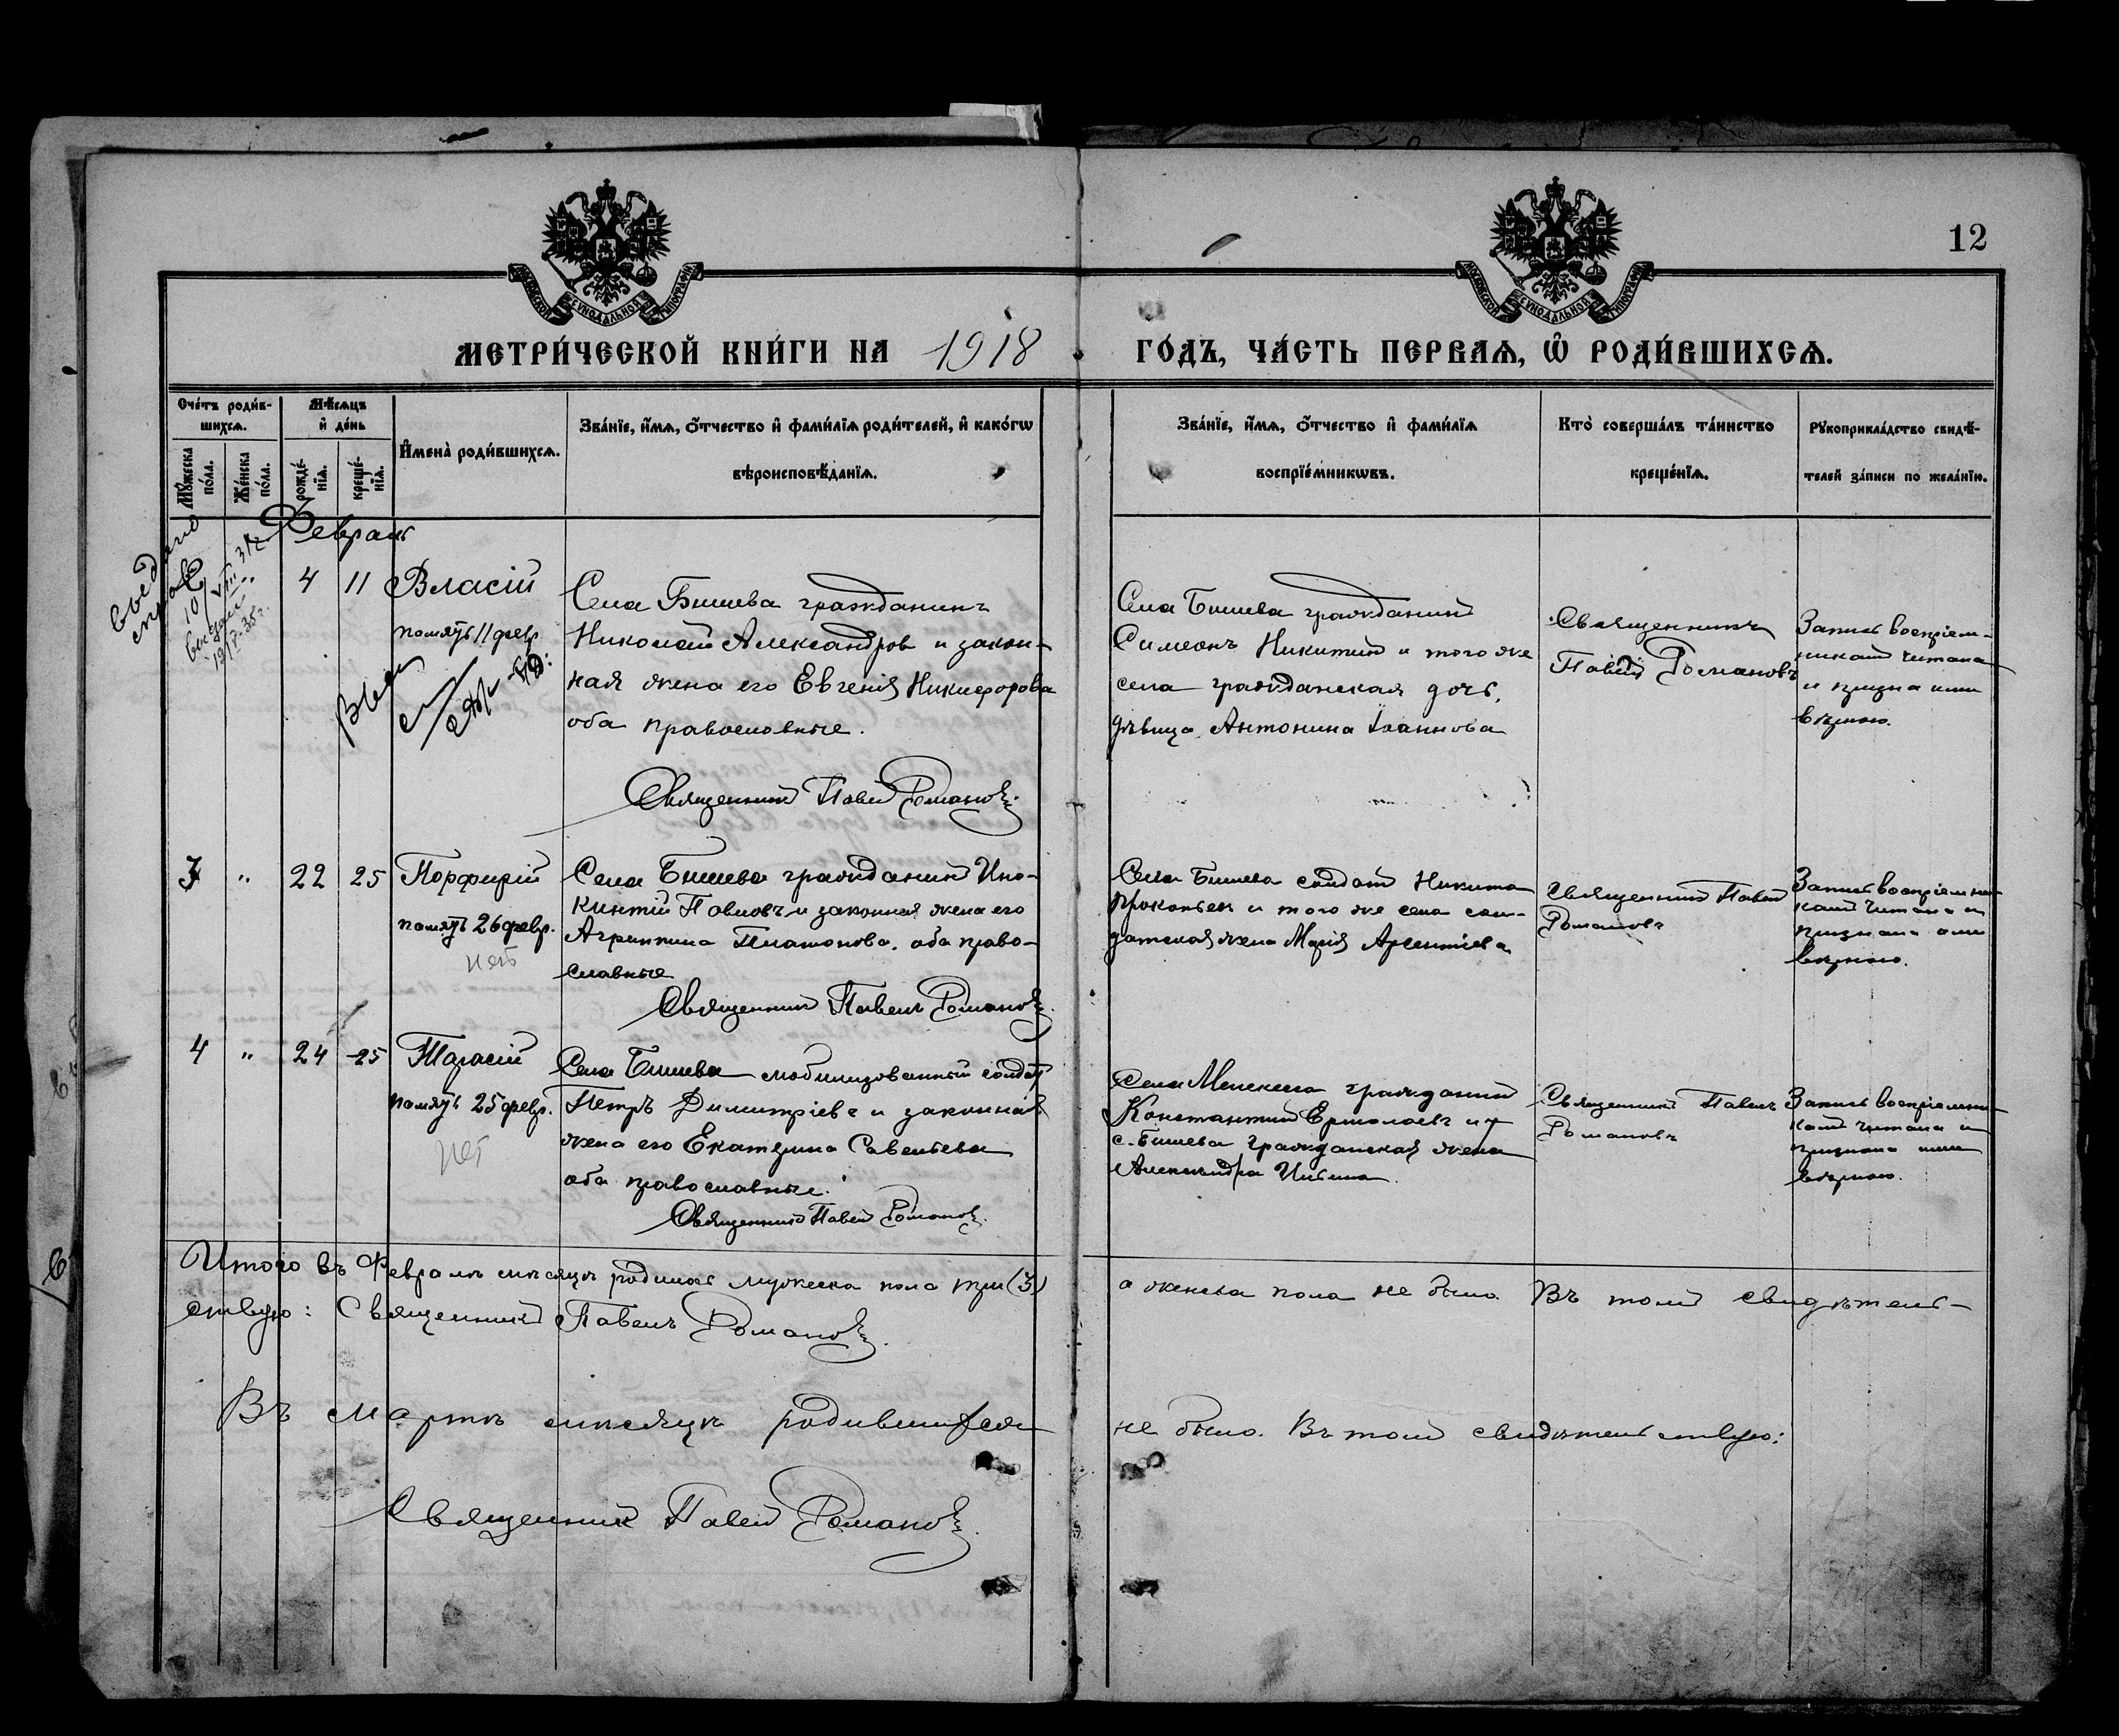 12
МОСКОВСКОЙ СѴНОДАЛЬНОЙ ТИПОГРАФІИ
МОСКОВСКОЙ СѴНОДАЛЬНОЙ ТИПОГРАФІИ
МЕТРИ́ЧЕСКОЙ КНИ́ГИ НА 1918 ГО́ДЪ, ЧА́СТЬ ПЕРВАѦ, Ѡ РОДИ́ВШИХСѦ.
Сче́тъ роди́в-
шихсѧ.
Мѣ́сѧцъ
и҆ де́нь
Мꙋ́жеска по́ла.
Же́нска по́ла.
рожде́-нїѧ.
креще́-нїѧ.
И҆мена̀ роди́вшихсѧ.
Зва́нїе, и҆́мѧ, ѻ҆́тчество и҆ фами́лїѧ роди́телей, и҆ како́гѡ
вѣроисповѣ́данїѧ.
Зва́нїе, и҆́мѧ, ѻ҆́тчество и҆ фами́лїѧ
воспрїе́мникѡвъ.
Кто̀ соверша́лъ та́инство
креще́нїѧ.
Рꙋкоприкла́дство свидѣ́-
телей за́писи по жела́нїю.
Февраль
4 11 Власій
память 11 февр.
Села Бишева гражданинъ
Николай Александров и закон-
ная жена его Евгенія Никифорова
оба православные.
Священник Павел Романовъ
Села Бишева гражданин
Симеонъ Никитин и того же
села гражданская дочь,
дѣвица Антонина Іоаннова
Священникъ
Павел Романовъ
Запись воспріем-
никам читана
и признана ими
вѣрною.
3 " 22 25 Порфирій
память 26 февр.
нет
Села Бишева гражданин Ино-
кентій Павловъ и законная жена его
Агриппина Платонова, оба право-
славные
Священник Павелъ Романовъ
Села Бишева солдат Никита
Прокопьев и того же села сол-
датская жена Марія Арсентіева
Священник Павел
Романовъ
Запись воспріемни-
кам читана и
признана ими
вѣрною.
4 " 24 25 Тарасій
память 25 февр.
нет
Села Бишева мобилизованный солдат
Петръ Димитріевъ и законная
жена его Екатерина Савельева
оба православные.
Священник Павел Романовъ
Села гражданин
Константин Ермолаевъ и
с. Бишева гражданская жена
Александра
Священникъ Павелъ
Романовъ
Запись воспріемни-
кам читана и
признана ими
вѣрною.
Итого въ Февралѣ мѣсяцѣ родилось мужеска пола три (3) а женска пола не было. Въ том свидѣтель-
ствую: Священникъ Павелъ Романовъ.
Въ мартѣ мѣсяцѣ родившихся не было. Въ том свидѣтельствую:
Священник Павел Романовъ.